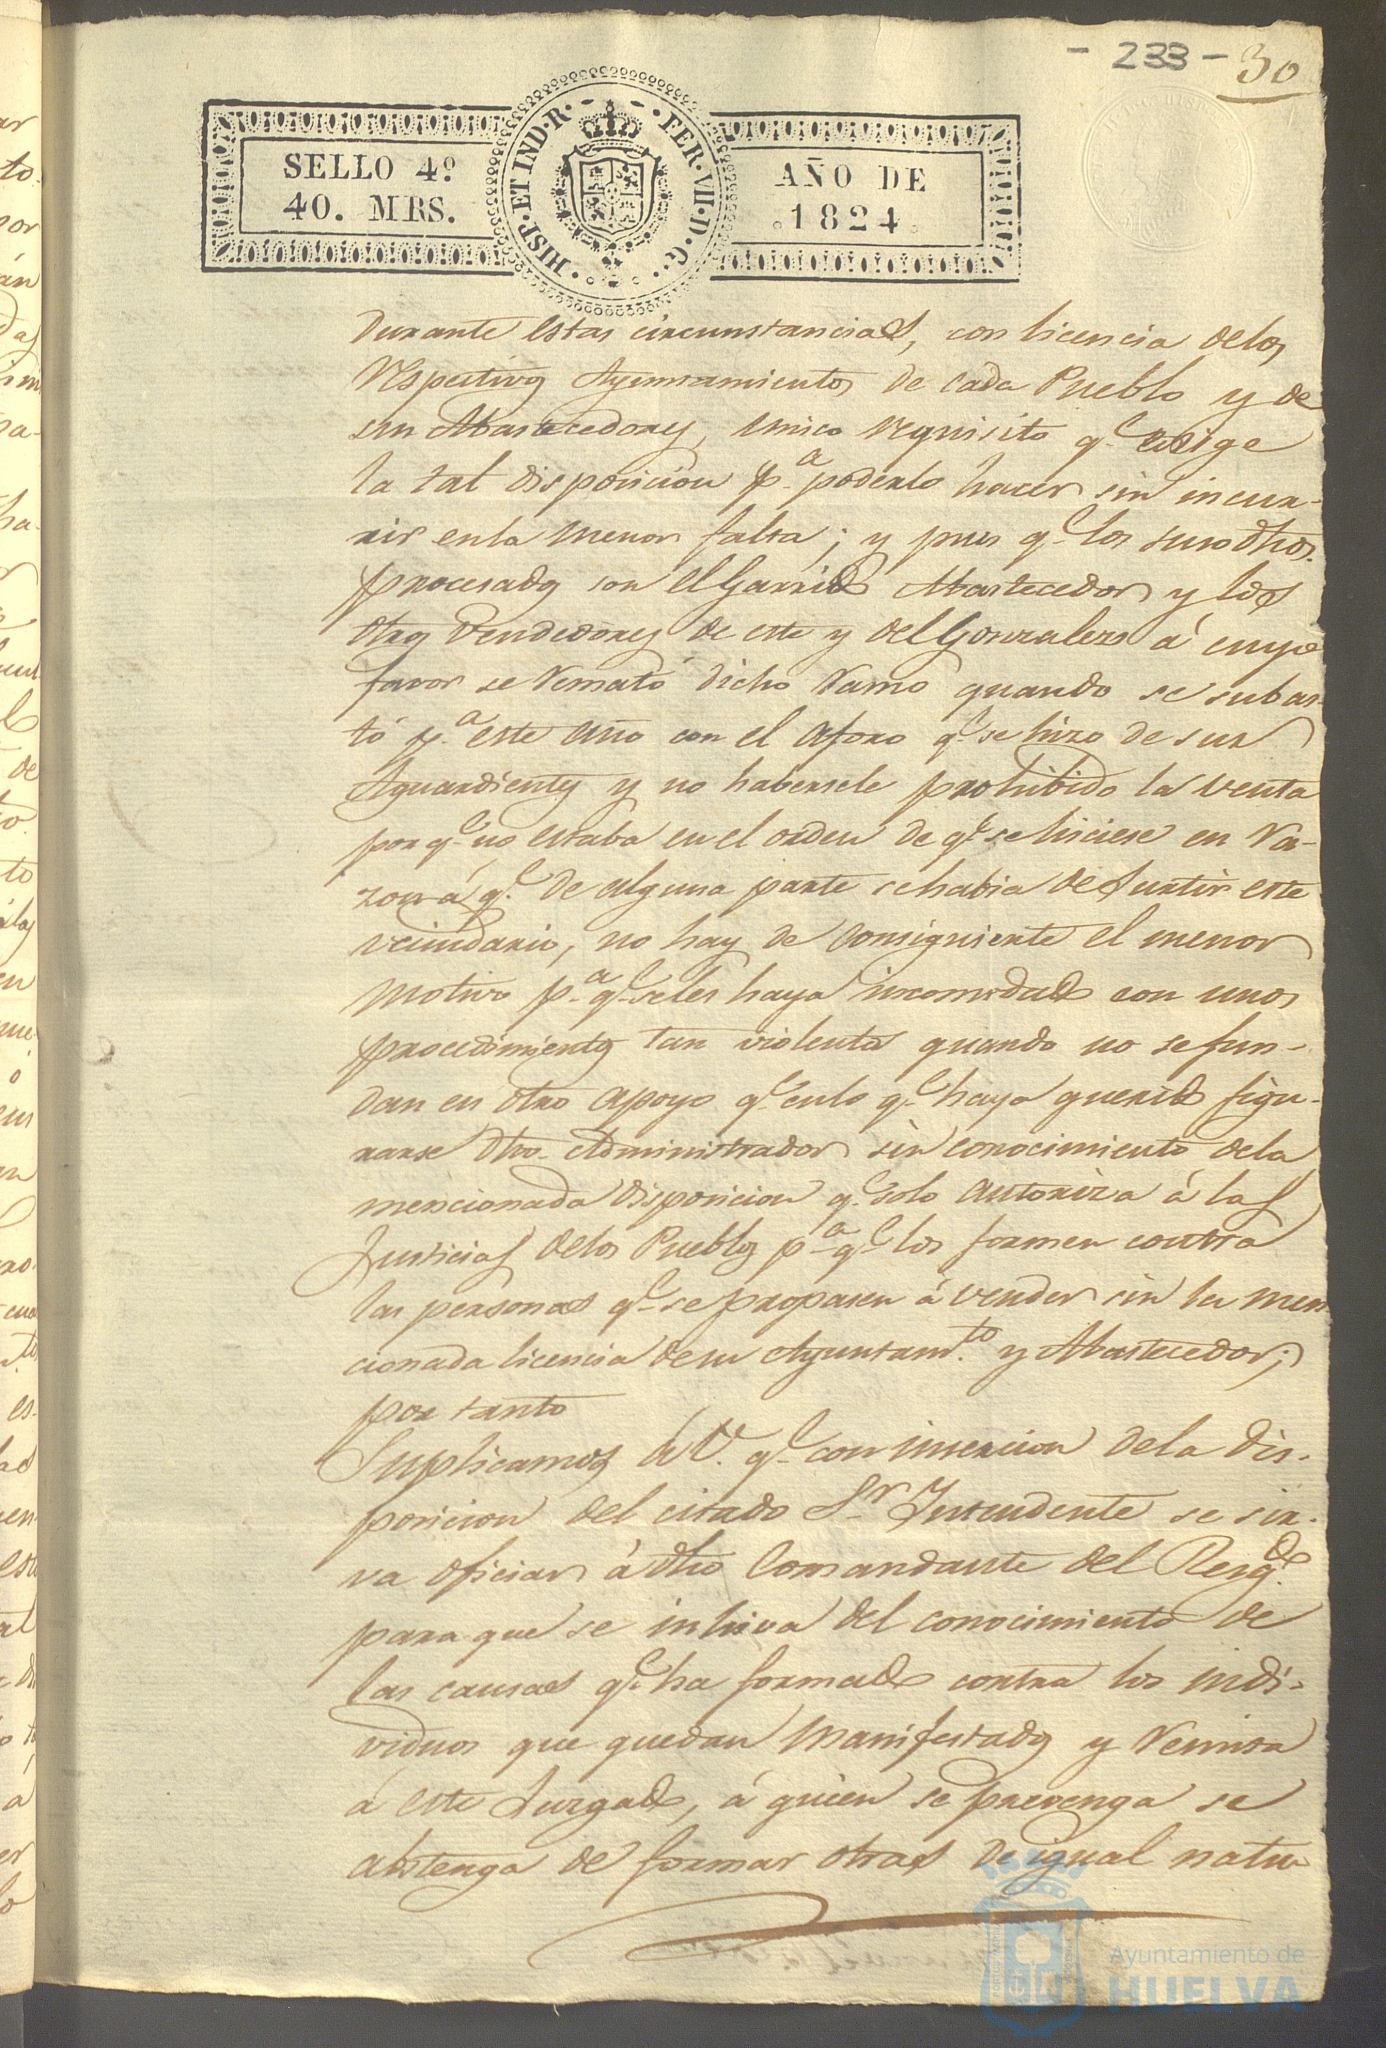 - 233 - 30
SELLO 4º
40. MRS.
HISP. ET IND. R. FER. VII. D. G.
AÑO DE
1824
durante estas circunstancias, con licencia delos
respectivos Ayunnamientos de cada Pueblo y de
sus Abastecedores, unico requisito q.e exige
la tal disposicion p.a poderlo hacer sin incur-
rir enla menor falta; y pues q.e los susodhos.
procesados son el Garrido Abastecedor y los
otros vendedores de este y del Gonzalez á cuyo
favor se remató dicho ramo quando se subas-
tó p.a este año con el aforo q.e se hizo de sus
Aguardientes y no habersele prohibido la venta
porq.e no estaba en el orden de q.e se hiciese en ra-
zon á q.e de alguna parte sehabia de surtir este
vecindario, no hay de consiguiente el menor
motivo p.a q.e seles haya incomodado con unos
procedimientos tan violentos quando no sefun-
dan en otro apoyo q.e enlo q.e haya querido figu-
rarse dho. Administrador sin conocimiento dela
mencionada disposicion q.e solo autoriza á las
Justicias delos Pueblos p.a q.e los formen contra
las personas q.e se propasen á vender sin la men
cionada licencia desu Ayuntam.to y Abastecedor;
por tanto
Suplicamos á V. q.e con insercion dela dis-
posicion del citado S.r Intendente se sir-
va oficiar á dho Comandante del Resg.do
para que se inhiva del conocimiento de
las causas q.e ha formado contra los indi-
viduos que quedan manifestados y remita
á este Juzgado, á quien se prevenga se
abstenga de formar otras de igual natu-
Ayuntamiento de
HUELVA